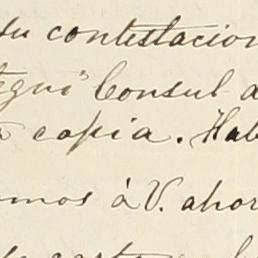 su contestacion
Consul a
copia. Hab
mos à V. ahor